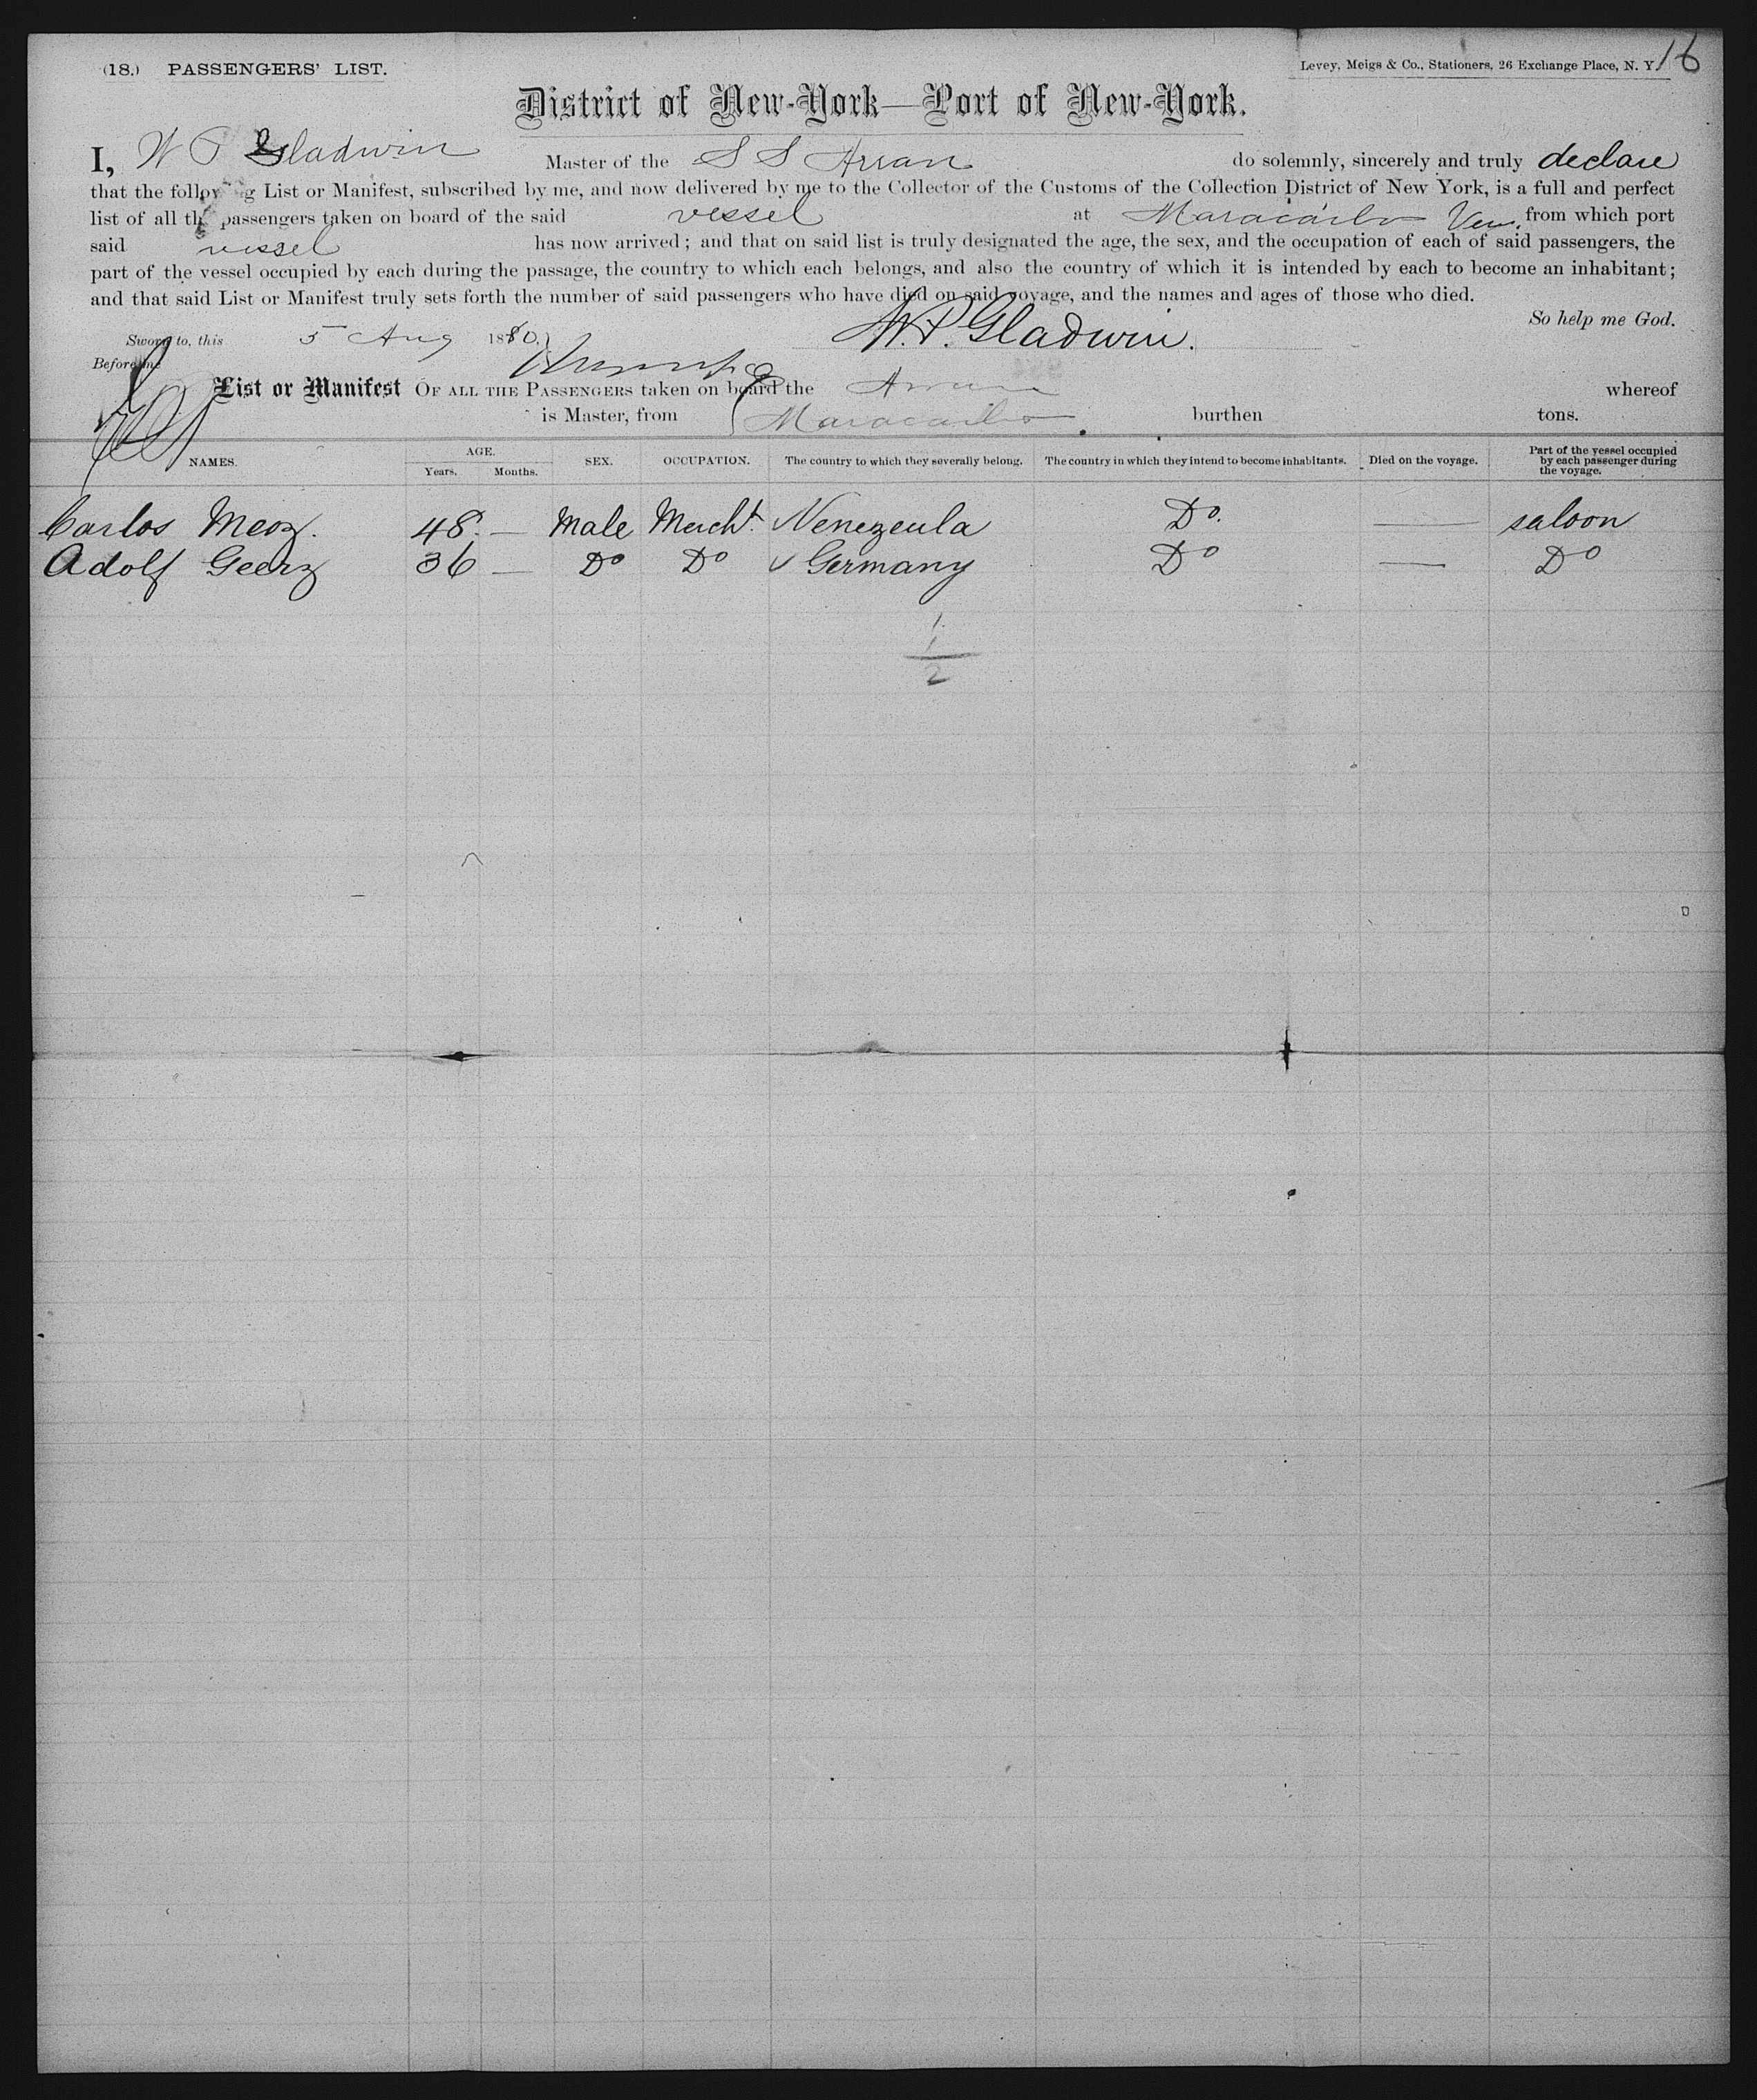 (18.) PASSENGERS' LIST.
Levey, Meigs & Co., Stationers, 26 Exchange Place, N. Y. 16
District of New-York—Port of New-York.
I, W P Gladwin Master of the S S Arran do solemnly, sincerely and truly declare
that the following List or Manifest, subscribed by me, and now delivered by me to the Collector of the Customs of the Collection District of New York, is a full and perfect
list of all the passengers taken on board of the said vessel at Maracaibo Ven. from which port
said vessel has now arrived; and that on said list is truly designated the age, the sex, and the occupation of each of said passengers, the
part of the vessel occupied by each during the passage, the country to which each belongs, and also the country of which it is intended by each to become an inhabitant;
and that said List or Manifest truly sets forth the number of said passengers who have died on said voyage, and the names and ages of those who died.
So help me God.
Sworn to, this 5 Aug 1880. W.P. Gladwin.
Before me
List or Manifest OF ALL THE PASSENGERS taken on board the Arran whereof
is Master, from Maracaibo burthen tons.
NAMES. AGE. Years. Months. SEX. OCCUPATION. The country to which they severally belong. The country in which they intend to become inhabitants. Died on the voyage. Part of the vessel occupied by each passenger during the voyage.
Carlos Meoz. 48. — Male Mercht. Venezeula Do. — saloon
Adolf Geerz 36 — Do Do Germany Do — Do
1
1
2